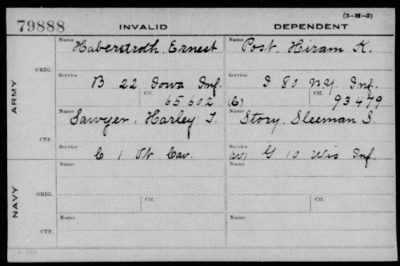 (3-H-3)
79888 INVALID DEPENDENT
ARMY
NAVY
ORIG.
CTF.
ORIG.
CTF.
Name Haberstroth, Ernest Name Post, Hiram K.
Service Service
B 22 Iowa Inf. I 80 N.Y. Inf.
Ctf. 65602 (C) Ctf. 93479
Name Sawyer, Harley T. Name Story, Sleeman S.
Service Service
C 1 Vt Cav. (W) G 10 Wis Inf.
Name Name
Service Ctf. Service Ctf.
Name Name
Service Service